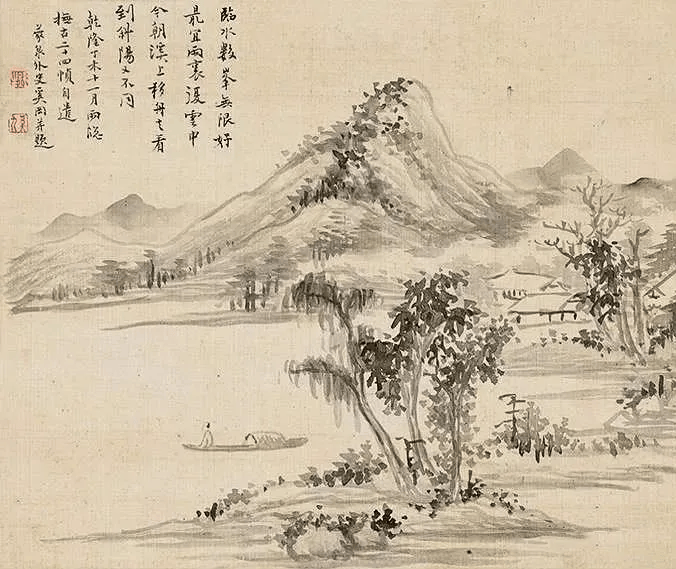 臨水數峯無限好
最宜雨裏澷雲中
今朝溪上移舟去看
到斜陽又不同
乾隆丁未十一月雨窓
撫古二十四幀自遣
蒙泉外史奚岡并題